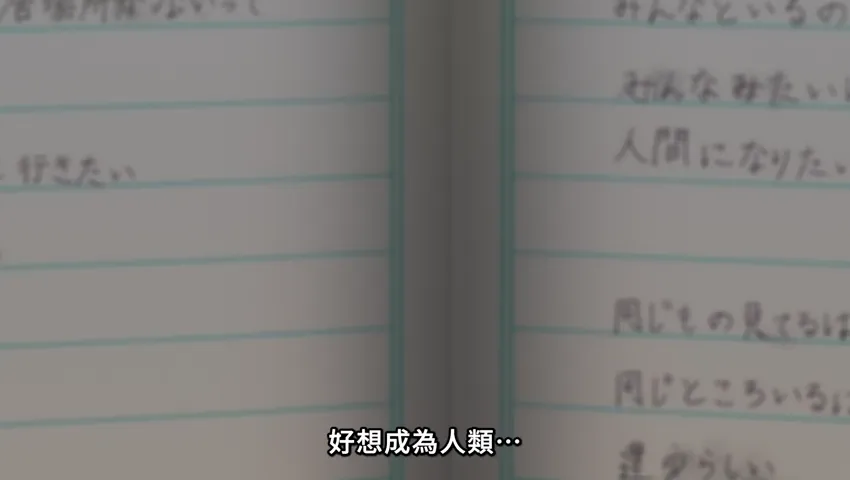 居場所がないって
行きたい
みんなといるの
みんなみたいに
人間になりたい
同じもの見てるは
同じところいるに
違うらしい
好想成為人類…